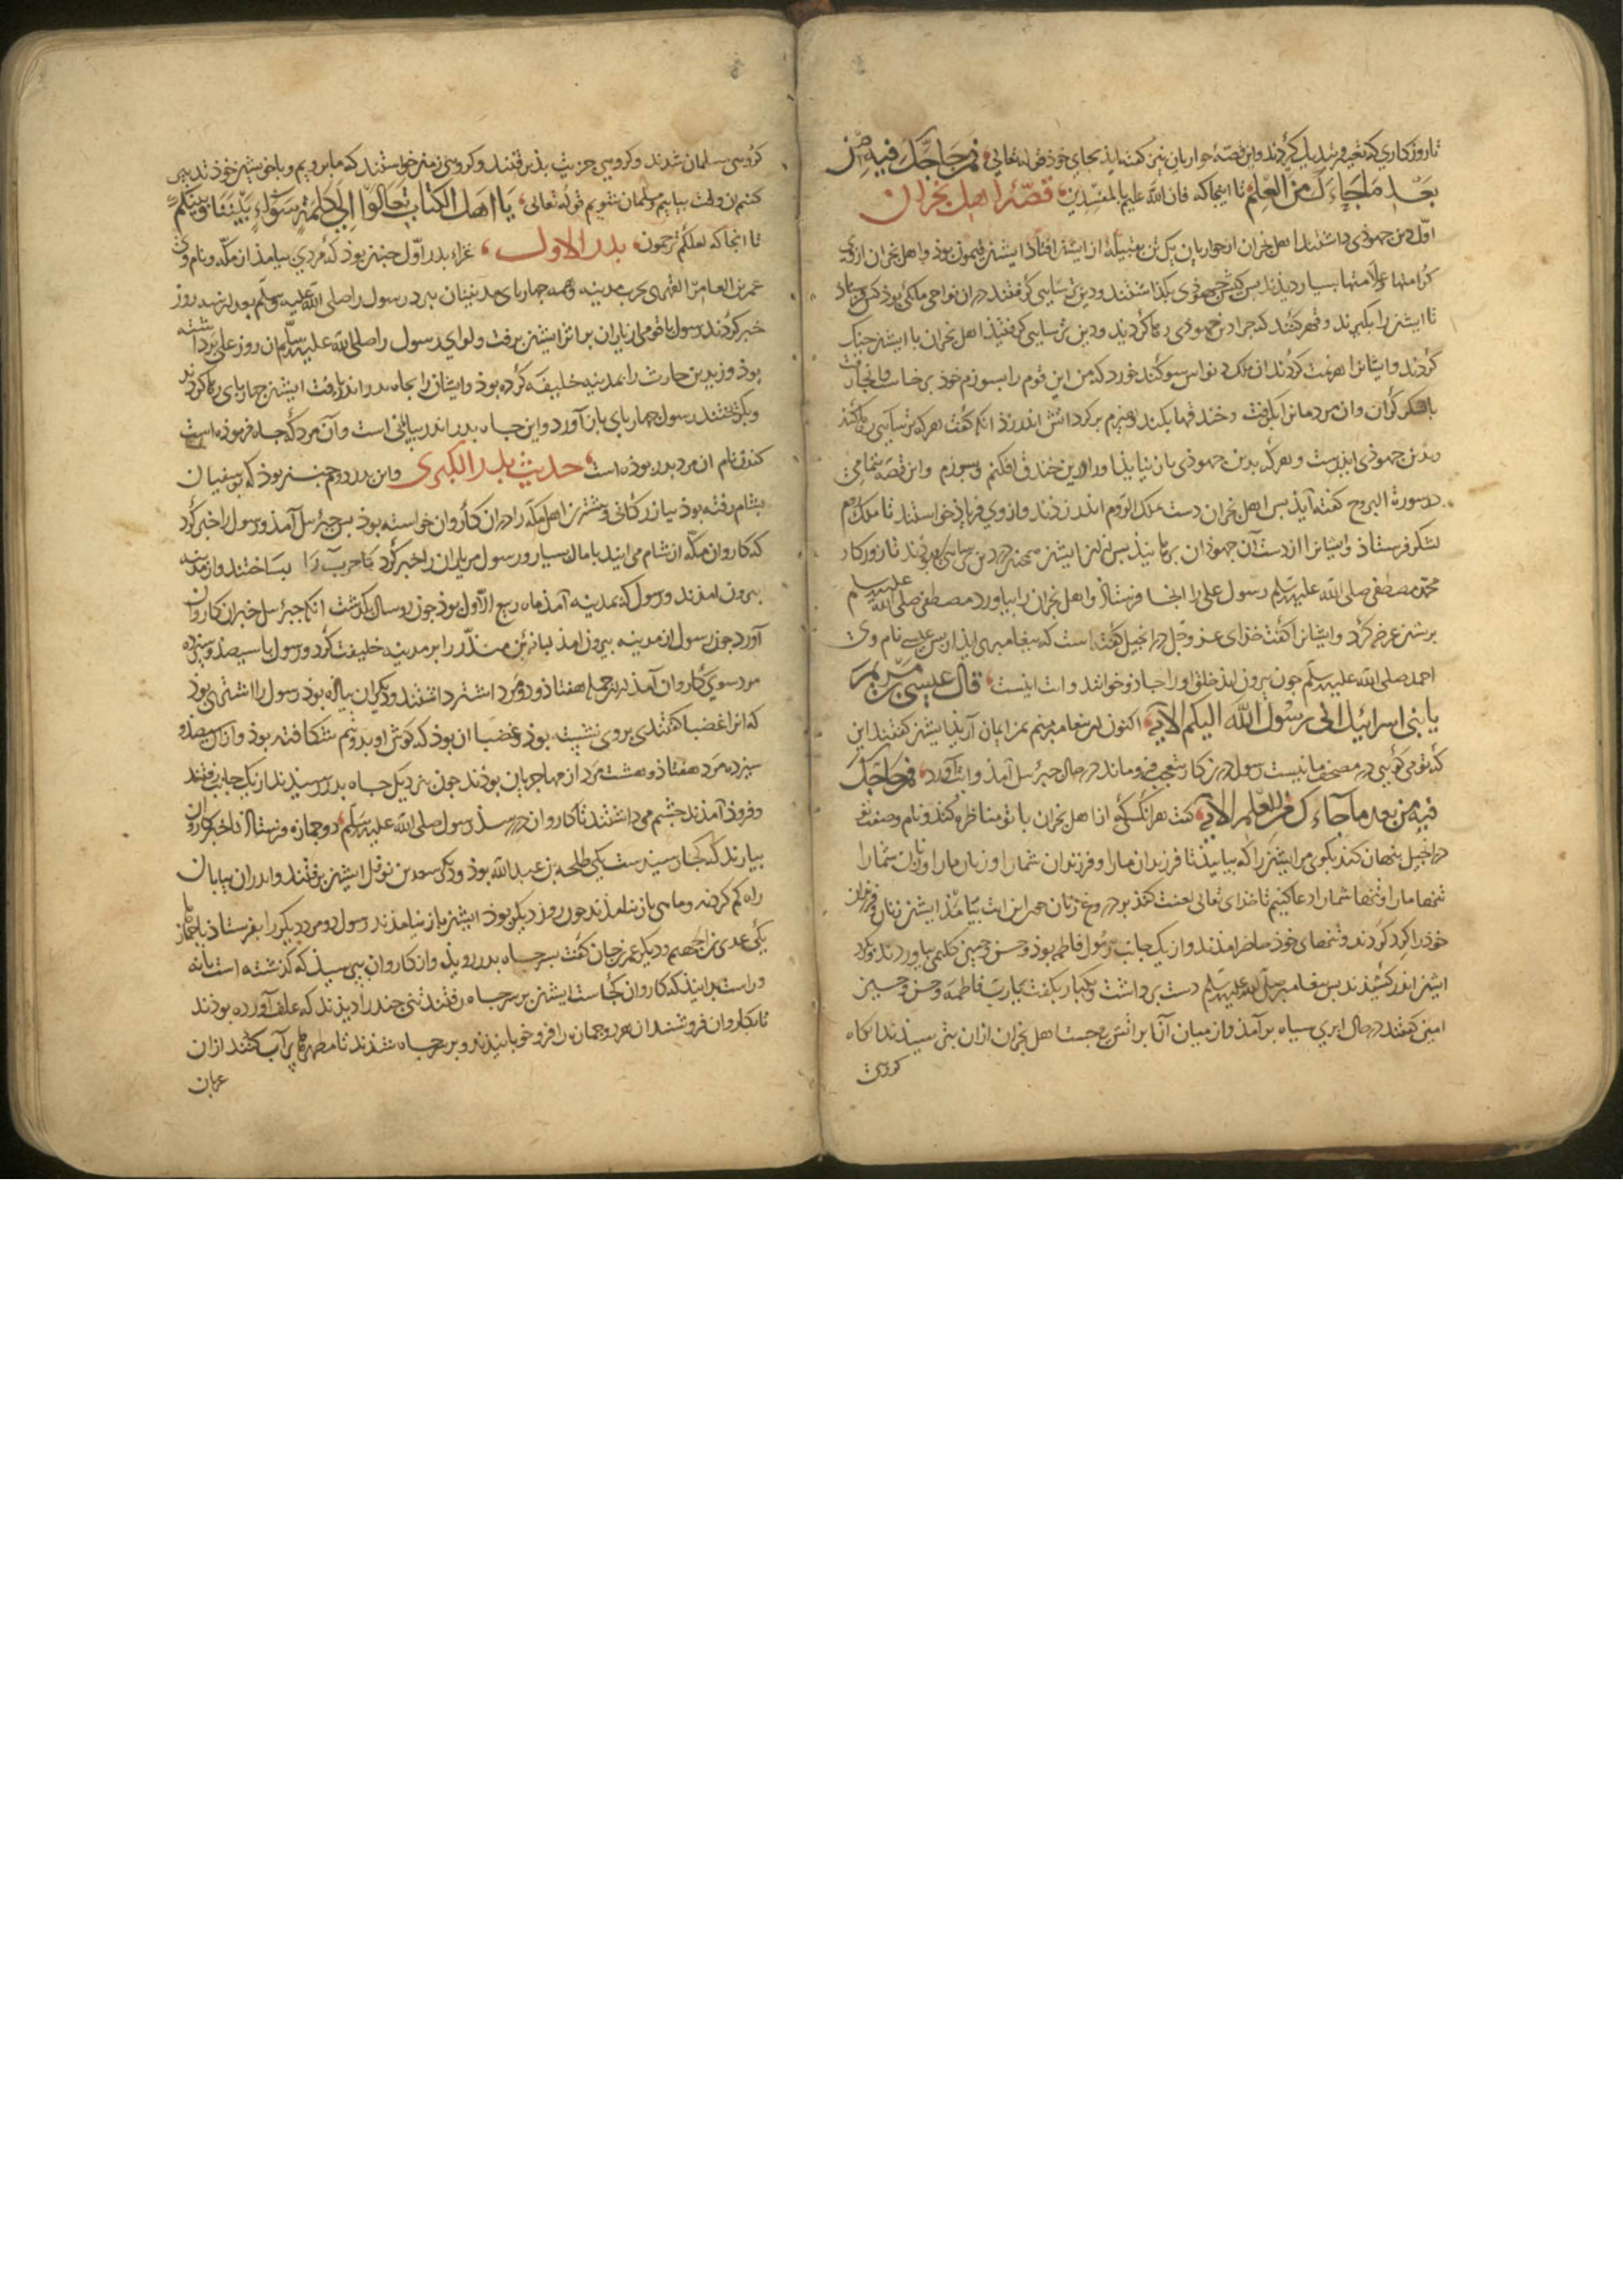 تا روزکاری که تغییر و تبدیل کردند و این قصّهٔ حواریان نیز کفته اید بجای خوذ قوله تعالی فمن حاجّک فیه من
بعد ما جاءک من العلم تا اینجا که فان الله علیم بالمفسدین قصّهٔ اهل نجران
اوّل دین جهوذی داشتند اهل نجران از حواریان یکی تن بقبیلهٔ از ایشان افتاذ ایشنر فیمون بوذ و اهل نجران از وی
کرامتها و علامتها بسیار دیدند بس کیش جهوذی بکذاشتند و دین ترسایی کرفتند در ان نواحی ملکی بوذ کس فرستاذ
تا ایشنرا بکیرند و قهر کنند که چرا دین جهوذی رها کردید و دین ترسایی کرفتید اهل نجران با ایشنر جنک
کردند و ایشانرا هزیمت کردند ان ملک ذونواس سوکند خورد که من این قوم را بسوزم خوذ برخاست و انجا رفت
با لشکر کران و ان مردمانرا بکرفت و خندقها بکند و هیزم برکرد اتش اندر زد انکه کفت هر که ترسایی رها کند
و بدین جهوذی ایذ رست و هر که بدین جهوذی باز نیایذ او را درین خندق افکنم و بسوزم و این قصّه بتمامی
در سورة البروج کفته آیذ بس اهل نجران دست بملک الروم اندر زدند و از وی فریاذ خواستند تا ملک روم
لشکر فرستاذ و ایشانرا از دست آن جهوذان برهانیذ بس از ان ایشنر همچنین در دین ترسایی می‌بوذند تا روزکار
محمّد مصطفی صلی الله علیه وسلم رسول علی را انجا فرستاذ و اهل نجران را بیاورد مصطفی صلی الله علیه وسلم
بر ایشنر عرضه کرد و ایشانرا کفت خذای عز وجل در انجیل کفته است که بیغامبری ایذ از پس عیسی نام وی
احمد صلی الله علیه وسلم چون بیرون ایذ خلق او را جاذو خوانند و ایت اینست قال عیسی بن مریم
یا بنی اسرائیل انی رسول الله الیکم الآیه اکنون ان بیغامبر منم بمن ایمان آریذ ایشنر کفتند این
که تو می کویی در مصحف ما نیست رسول در ان کار متعجب فرو ماند در حال جبرئیل آمذ و ایت آورد فمن حاجّک
فیه من بعد ما جاءک من العلم الآیه کفت هر انکسی که از اهل نجران با تو مناظره کند و نام و صفت تو
در انجیل بنهان کند بکوی مر ایشنرا که بیاییذ تا فرزندان ما را و فرزندان شما را و زنان ما را و زنان شما را
تنها ما را و تنها شما را دعا کنیم تا خذای تعالی لعنت کند بر دروغ زنان چون این ایت بیامذ ایشنر زنان و فرزندان
خوذ را کرد کردند و تنهای خوذ حاضر امدند و از یک جانب رسول فاطمه بوذ و حسن و حسین کلیمی بیاوردند و کرد
ایشنر اندر کشیذند بس بیغامبر صلی الله علیه وسلم دست برداشت و یکبار بکفت یا رب فاطمه و حسن و حسین
امین کفتند در حال ابری سیاه برآمذ و از میان آن ابر اتش می‌جست اهل نجران از ان بترسیذند انکاه
کروهی
کروهی مسلمان شدند و کروهی جزیت بذیرفتند و کروهی زمان خواستند که ما برویم و با خویشتن خوذ تدبیر
کنیم ان وقت بیاییم و مسلمان شویم قوله تعالی یا اهل الکتاب تعالوا الی کلمة سواء بیننا وبینکم
تا انجا که لعلکم ترحمون بدر الاول غزاء بدر اوّل چنین بوذ که مردی بیامذ از مکّه و نام وی
عمر بن العامر الفهری بحرب مدینه و همه چهاربای مدینیان ببرد رسول را صلی الله علیه وسلم بعد از سه روز
خبر کردند رسول با قومی از یاران بر اثر ایشنر برفت و لوای رسول را صلی الله علیه وسلم ان روز علی برداشته
بوذ و زید بن حارث را بمدینه خلیفه کرده بوذ و ایشانرا بجاه بدر اندر یافت ایشنر چهاربای رها کردند
و بکریختند رسول چهاربای باز آورد و این جاه بدر اندر بیابانی است و آن مرد که جاه فرموذه است
کندن نام ان مرد بدر بوذه است حدیث بدر الکبری و این بدر دوم چنین بوذ که بوسفیان
بشام رفته بوذ ببازرکانی و بیشتر از اهل مکّه را در ان کاروان خواسته بوذ بس جبرئیل آمذ و رسول را خبر کرد
که کاروان مکّه از شام می ایند با مال بسیار و رسول مر یاران را خبر کرد تا حرب را بساختند و از مدینه
بیرون امذند و رسول که بمدینه آمذ ماه ربیع الاول بوذ چون دو سال بکذشت انکه جبرئیل خبر ان کاروان
آورد چون رسول از مدینه بیرون امذ لبابه بن منذر را بر مدینه خلیفت کرد و رسول با سیصد و سیزده
مرد سوی کاروان آمذ از ان جمله هفتاذ و دو مرد اشتر داشتند و دیکران بیاذه بوذ رسول را اشتری بوذ
که انرا غضبا کفتندی بر وی نشسته بوذ و غضبا ان بوذ که کوش او بدو نیم شکافته بوذ و از ان سیصد و
سیزده مرد هفتاذ و هشت مرد از مهاجریان بوذند چون بنزدیک جاه بدر رسیذند از یک جانب رفتند
و فروذ آمذند چشم می داشتند تا کاروان در رسذ رسول صلی الله علیه وسلم دو جمازه فرستاذ تا خبر کاروان
بیارند که کجا رسیده ست یکی طلحه بن عبدالله بوذ و دیکر سعد بن نوفل ایشنر برفتند و اندر ان بیابان
راه کم کردند و ماهی باز نیامذند چون روز دیکر بوذ ایشنر باز نیامذند رسول دو مرد دیکر را بفرستاذ با جماز
یکی عدی و دیکر عمر کفت بسر جاه بدر رویذ و از کاروان ببرسیذ که کذشته است یا نه
و راست بدانیذ که کاروان کجاست ایشنر بر سر جاه رفتند تنی چند را دیذند که علف آورده بوذند
تا بکاروان فروشند ان هر دو جمازه را فرو خوابانیذند و بر سر جاه شذند تا مطهرها پر آب کنند از ان
عربان